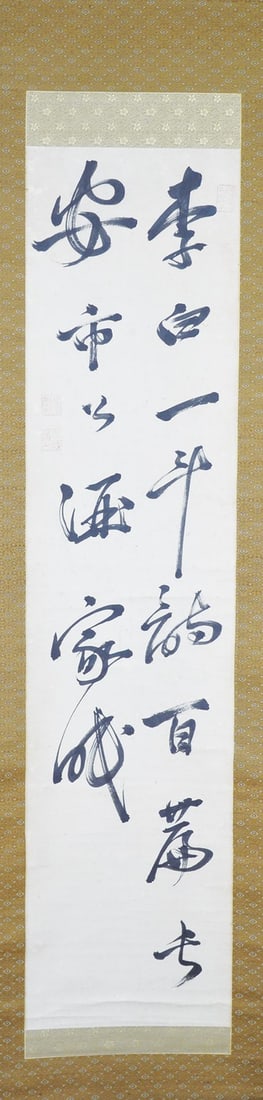 李白一斗詩百篇長
安市上酒家眠